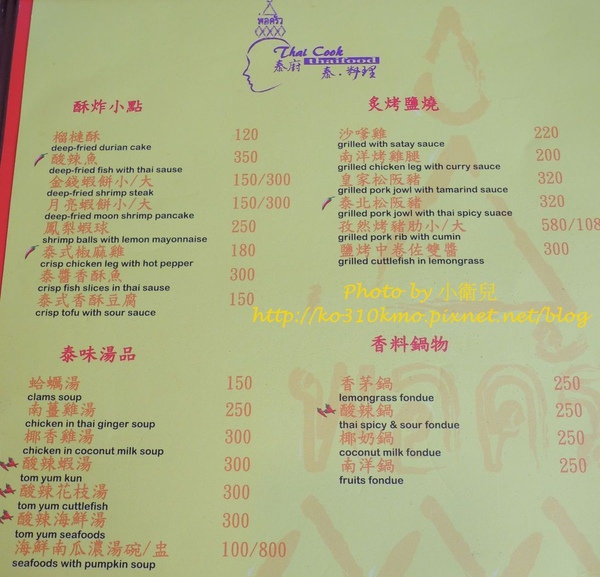 พ่อครัว
Thai Cook
泰廚 thaifood
泰．料理
酥炸小點
榴槤酥 120
deep-fried durian cake
酸辣魚 350
deep-fried fish with thai sause
金錢蝦餅小/大 150/300
deep-fried shrimp steak
月亮蝦餅小/大 150/300
deep-fried moon shrimp pancake
鳳梨蝦球 250
shrimp balls with lemon mayonnaise
泰式椒麻雞 180
crisp chicken leg with hot pepper
泰醬香酥魚 300
crisp fish slices in thai sause
泰式香酥豆腐 150
crisp tofu with sour sauce
泰味湯品
蛤蠣湯 150
clams soup
南薑雞湯 250
chicken in thai ginger soup
椰香雞湯 300
chicken in coconut milk soup
酸辣蝦湯 300
tom yum kun
酸辣花枝湯 300
tom yum cuttlefish
酸辣海鮮湯 300
tom yum seafoods
海鮮南瓜濃湯碗/盅 100/800
seafoods with pumpkin soup
炙烤鹽燒
沙嗲雞 220
grilled with satay sauce
南洋烤雞腿 200
grilled chicken leg with curry sauce
皇家松阪豬 320
grilled pork jowl with tamarind sauce
泰北松阪豬 320
grilled pork jowl with thai spicy suace
孜然烤豬肋小/大 580/108
grilled pork rib with cumin
鹽烤中卷佐雙醬 300
grilled cuttlefish in lemongrass
Photo by 小衛兒
http://ko310kmo.pixnet.net/blog
香料鍋物
香茅鍋 250
lemongrass fondue
酸辣鍋 250
thai spicy & sour fondue
椰奶鍋 250
coconut milk fondue
南洋鍋 250
fruits fondue